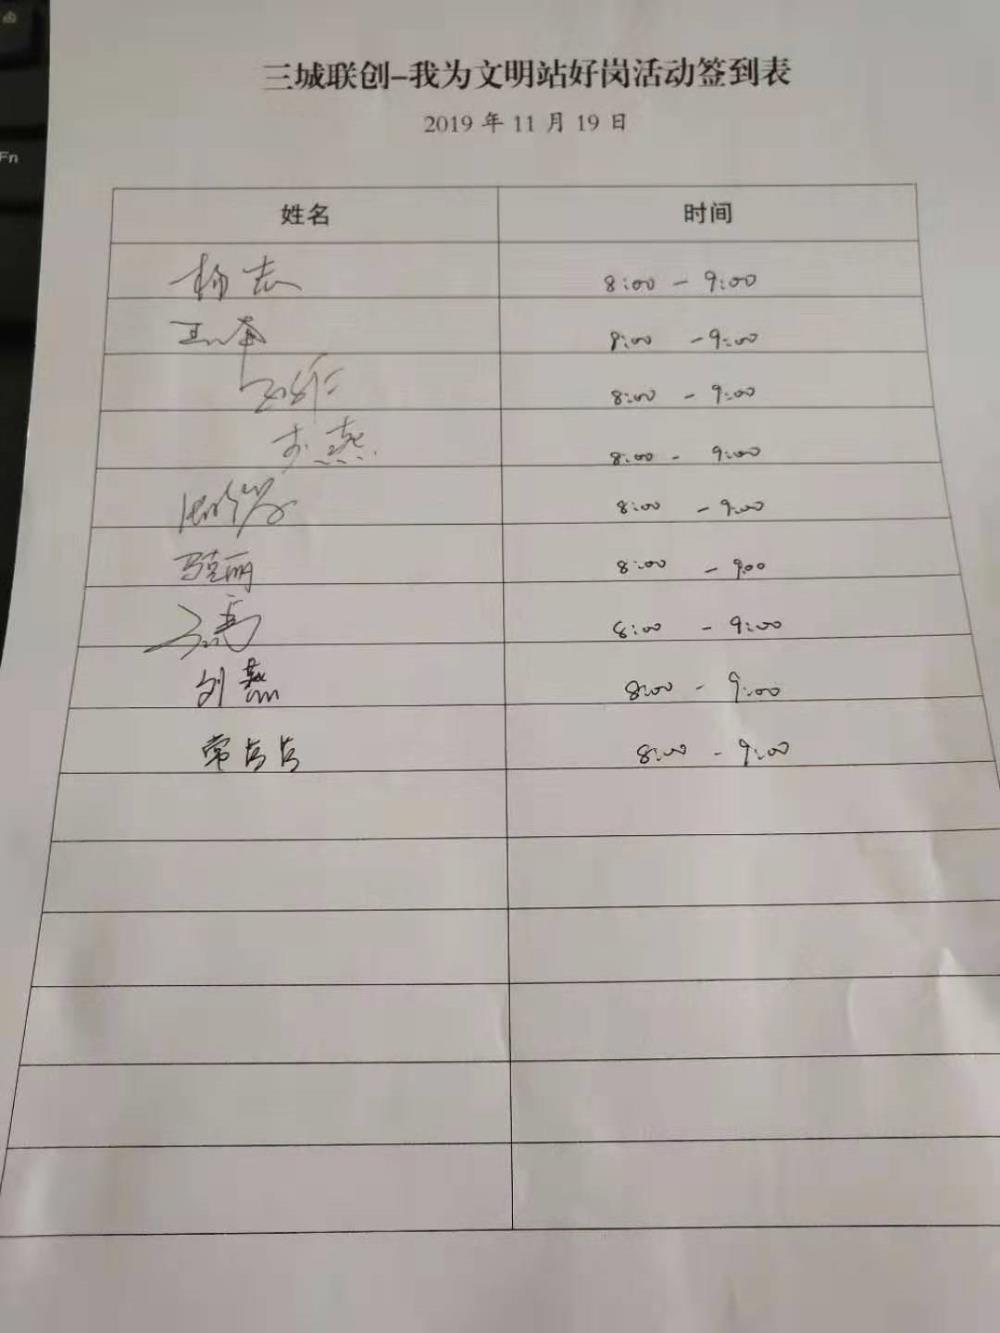 Fn
三城联创-我为文明站好岗活动签到表
2019 年 11 月 19 日
姓名 时间
杨志 8:00 - 9:00
8:00 - 9:00
8:00 - 9:00
李燕 8:00 - 9:00
8:00 - 9:00
马克丽 8:00 - 9:00
8:00 - 9:00
刘燕 8:00 - 9:00
常占占 8:00 - 9:00